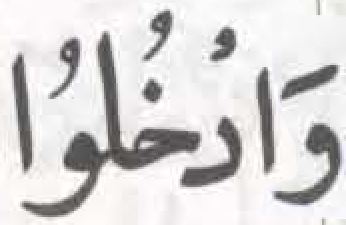 وَادُخُلوُا